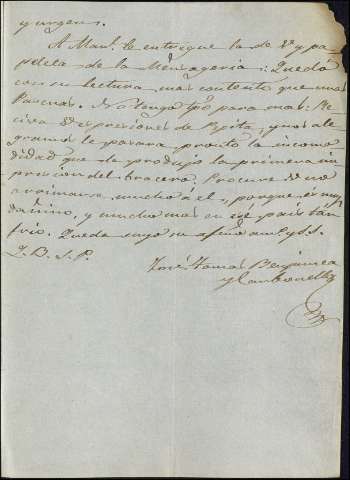 y urgens.
A Man.l le entregué la de V y pa
peleta de la Mensageria: Quedó
con su lectura mas contento que unas
Pascuas. No tengo tpo para mas: Re
civa V espresiones de Pepita, y nos ale
gramos le pasara pronto la incomo
didad que le produjo la primera im
presion del bracero. Procure V no
arrimarse mucho á él, porque es muy
dañino, y mucho mas en ese pais tan
frio. Queda suyo su afmo am.o y S.S.
Q. B. S. M.
José Tomás
y Carbonell